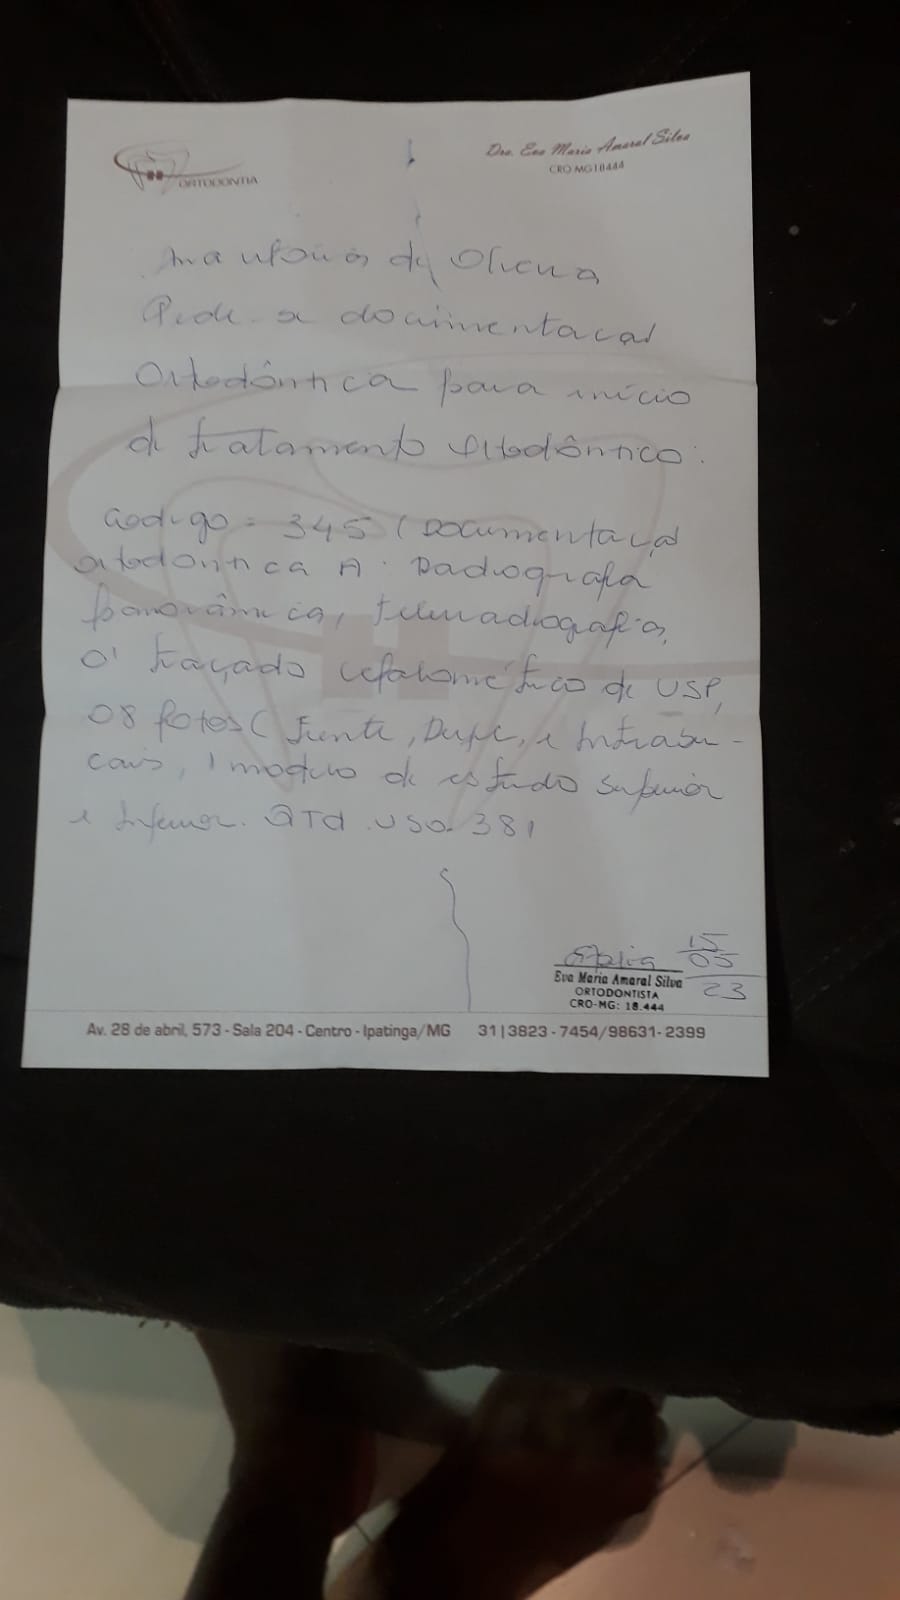 ORTODONTIA
Dra. Eva Maria Amaral Silva
CRO MG18444
de Oliveira
Pede-se documentaçaõ
Ortodôntica para início
de tratamento Ortodôntico.
Codigo = 345 (Documentaçaõ
ortodontica A. Radiografia
panorâmica, telerradiografia,
01 traçado cefalométrico de USP,
08 fotos ( Frente, Perfil, e Intrabu-
cais, 1 modelo de estudo superior
e Inferior. QTd. USO. 381
15
05
23
Eva Maria Amaral Silva
ORTODONTISTA
CRO-MG: 18.444
Av. 28 de abril, 573 - Sala 204 - Centro - Ipatinga/MG 31|3823 - 7454/98631- 2399